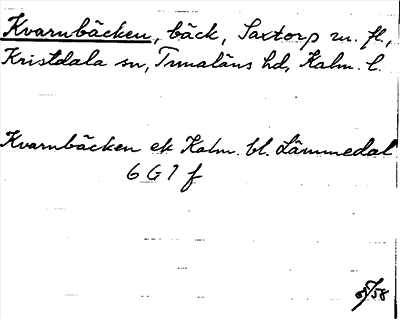 Kvarnbäcken, bäck, Saxtorp m. fl.,
Kristdala sn, Tunaläns hd, Kalm. l.
Kvarnbäcken ek Kalm. bl. Lämmedal
6 G 7 f
/58